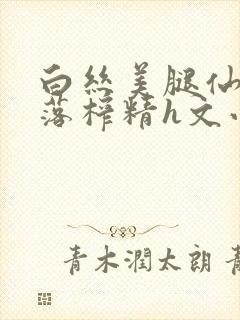 白丝美腿仙
落榨精h文小
青木润太朗 青